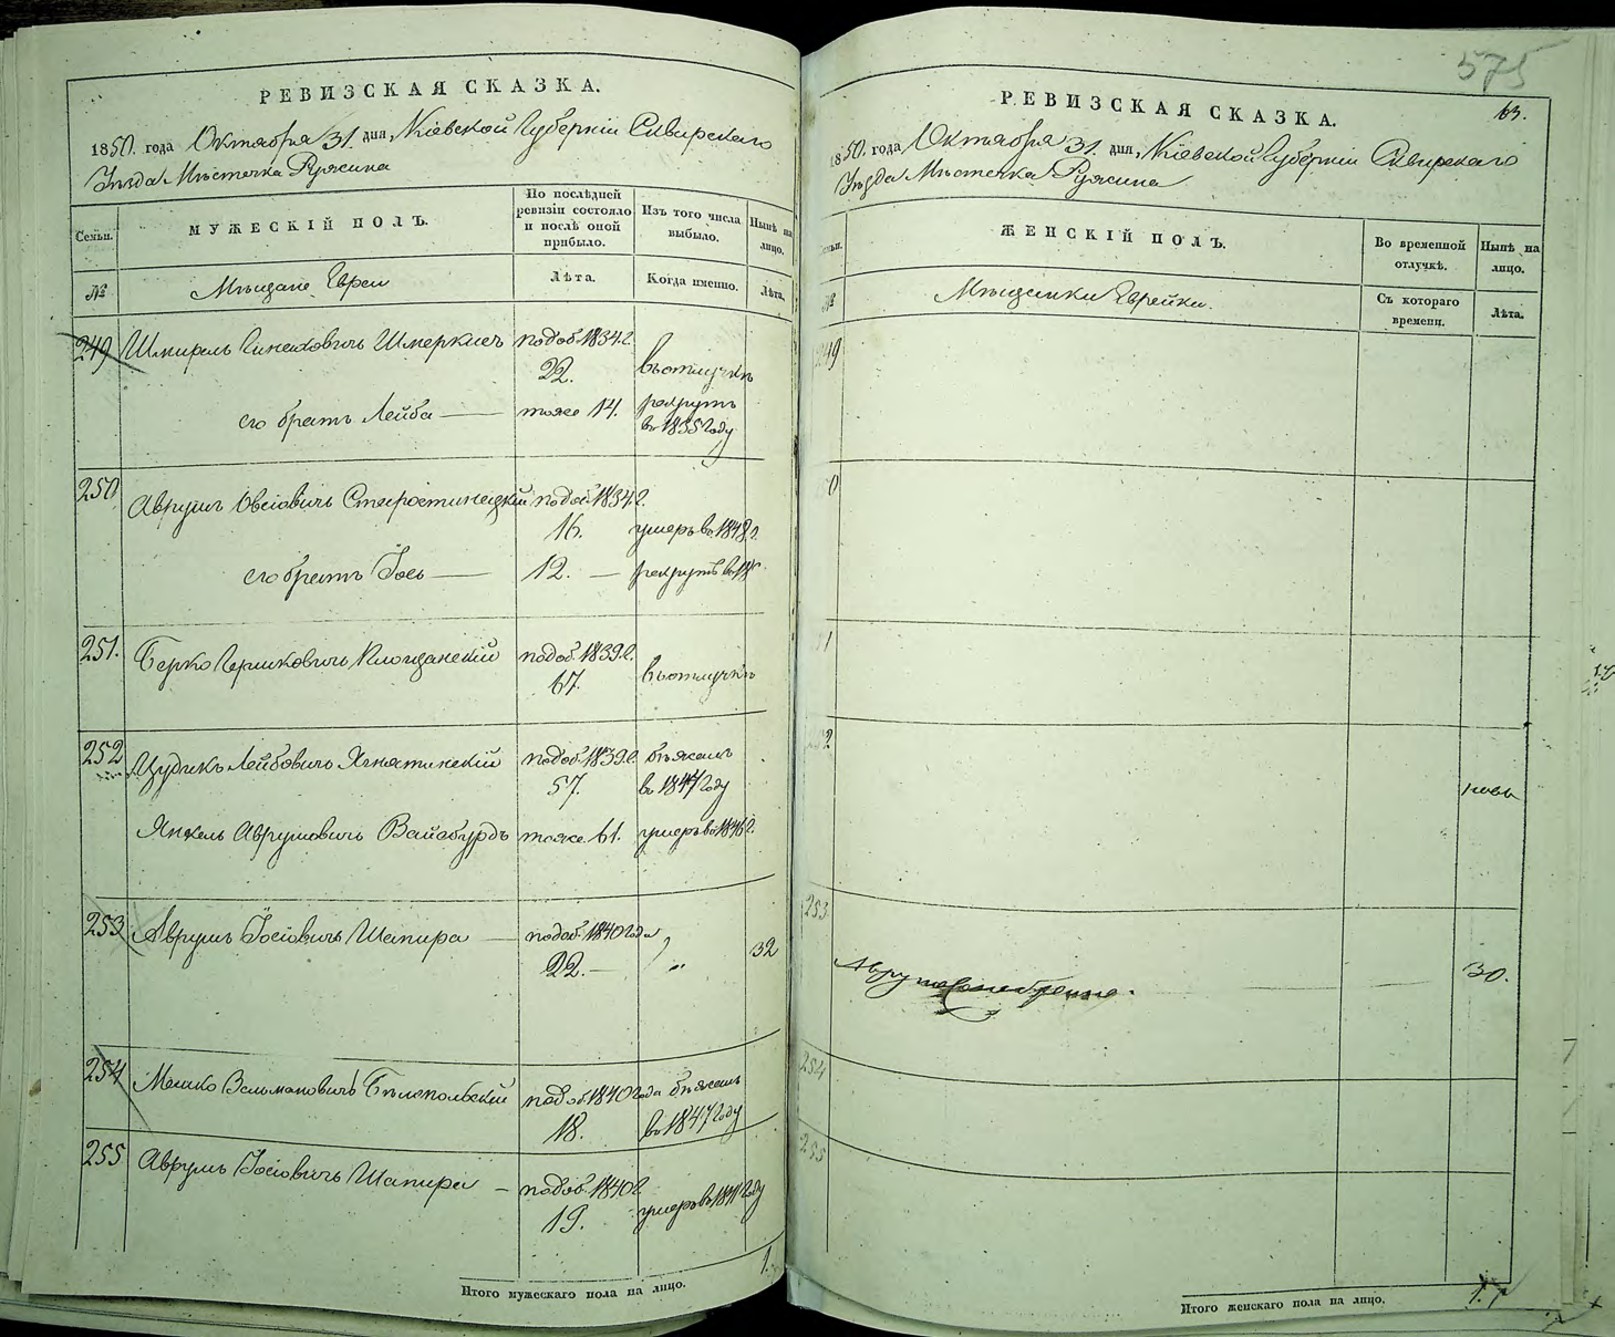 РЕВИЗСКАЯ СКАЗКА.
1850. года Октября 31. дня, Кіевской Губерніи Сквирскаго
Уѣзда Мѣстечка Ружина
Семьи.
МУЖЕСКІЙ ПОЛЪ.
По послѣдней ревизіи состояло и послѣ оной прибыло.
Изъ того числа выбыло.
Нынѣ на лицо.
№
Мѣщане Евреи
Лѣта.
Когда именно.
Лѣта.
249 Шмеркис подоб. 1834 г.
22. въ отлучкѣ
его братъ Лейба — тоже 14. рекрутъ
въ 1835 году
250 Аврумъ Овсіовичъ подоб. 1834 г.
16. умеръ въ 1848 г.
его братъ Іось — 12. — рекрутъ въ
251. Берко Гершковичъ подоб. 1839 г.
67. въ отлучкѣ
252 Цудикъ Лейбовичъ Ягнятинскій подоб. 1839 г. бѣжалъ
57. въ 1847 году
Янкель Аврумовичъ Вайсбурдъ тоже 61. умеръ въ 1846 г.
253 Аврумъ Іосіовичъ Шапира — подоб. 1840 года
22. — „ 32
254 Мошко Бѣлопольскій подоб. 1840 года бѣжалъ
18. въ 1847 году
255 Аврумъ Іосіовичъ Шапира — подоб. 1840 г.
19. умеръ въ 1841 году
1.
Итого мужескаго пола на лицо.
575
63.
РЕВИЗСКАЯ СКАЗКА.
1850. года Октября 31. дня, Кіевской Губерніи Сквирскаго
Уѣзда Мѣстечка Ружина
ЖЕНСКІЙ ПОЛЪ.
Во временной отлучкѣ.
Нынѣ на лицо.
№
Мѣщанки Еврейки.
Съ котораго времени.
Лѣта.
249
253
30.
254
255
Итого женскаго пола на лицо.
1.